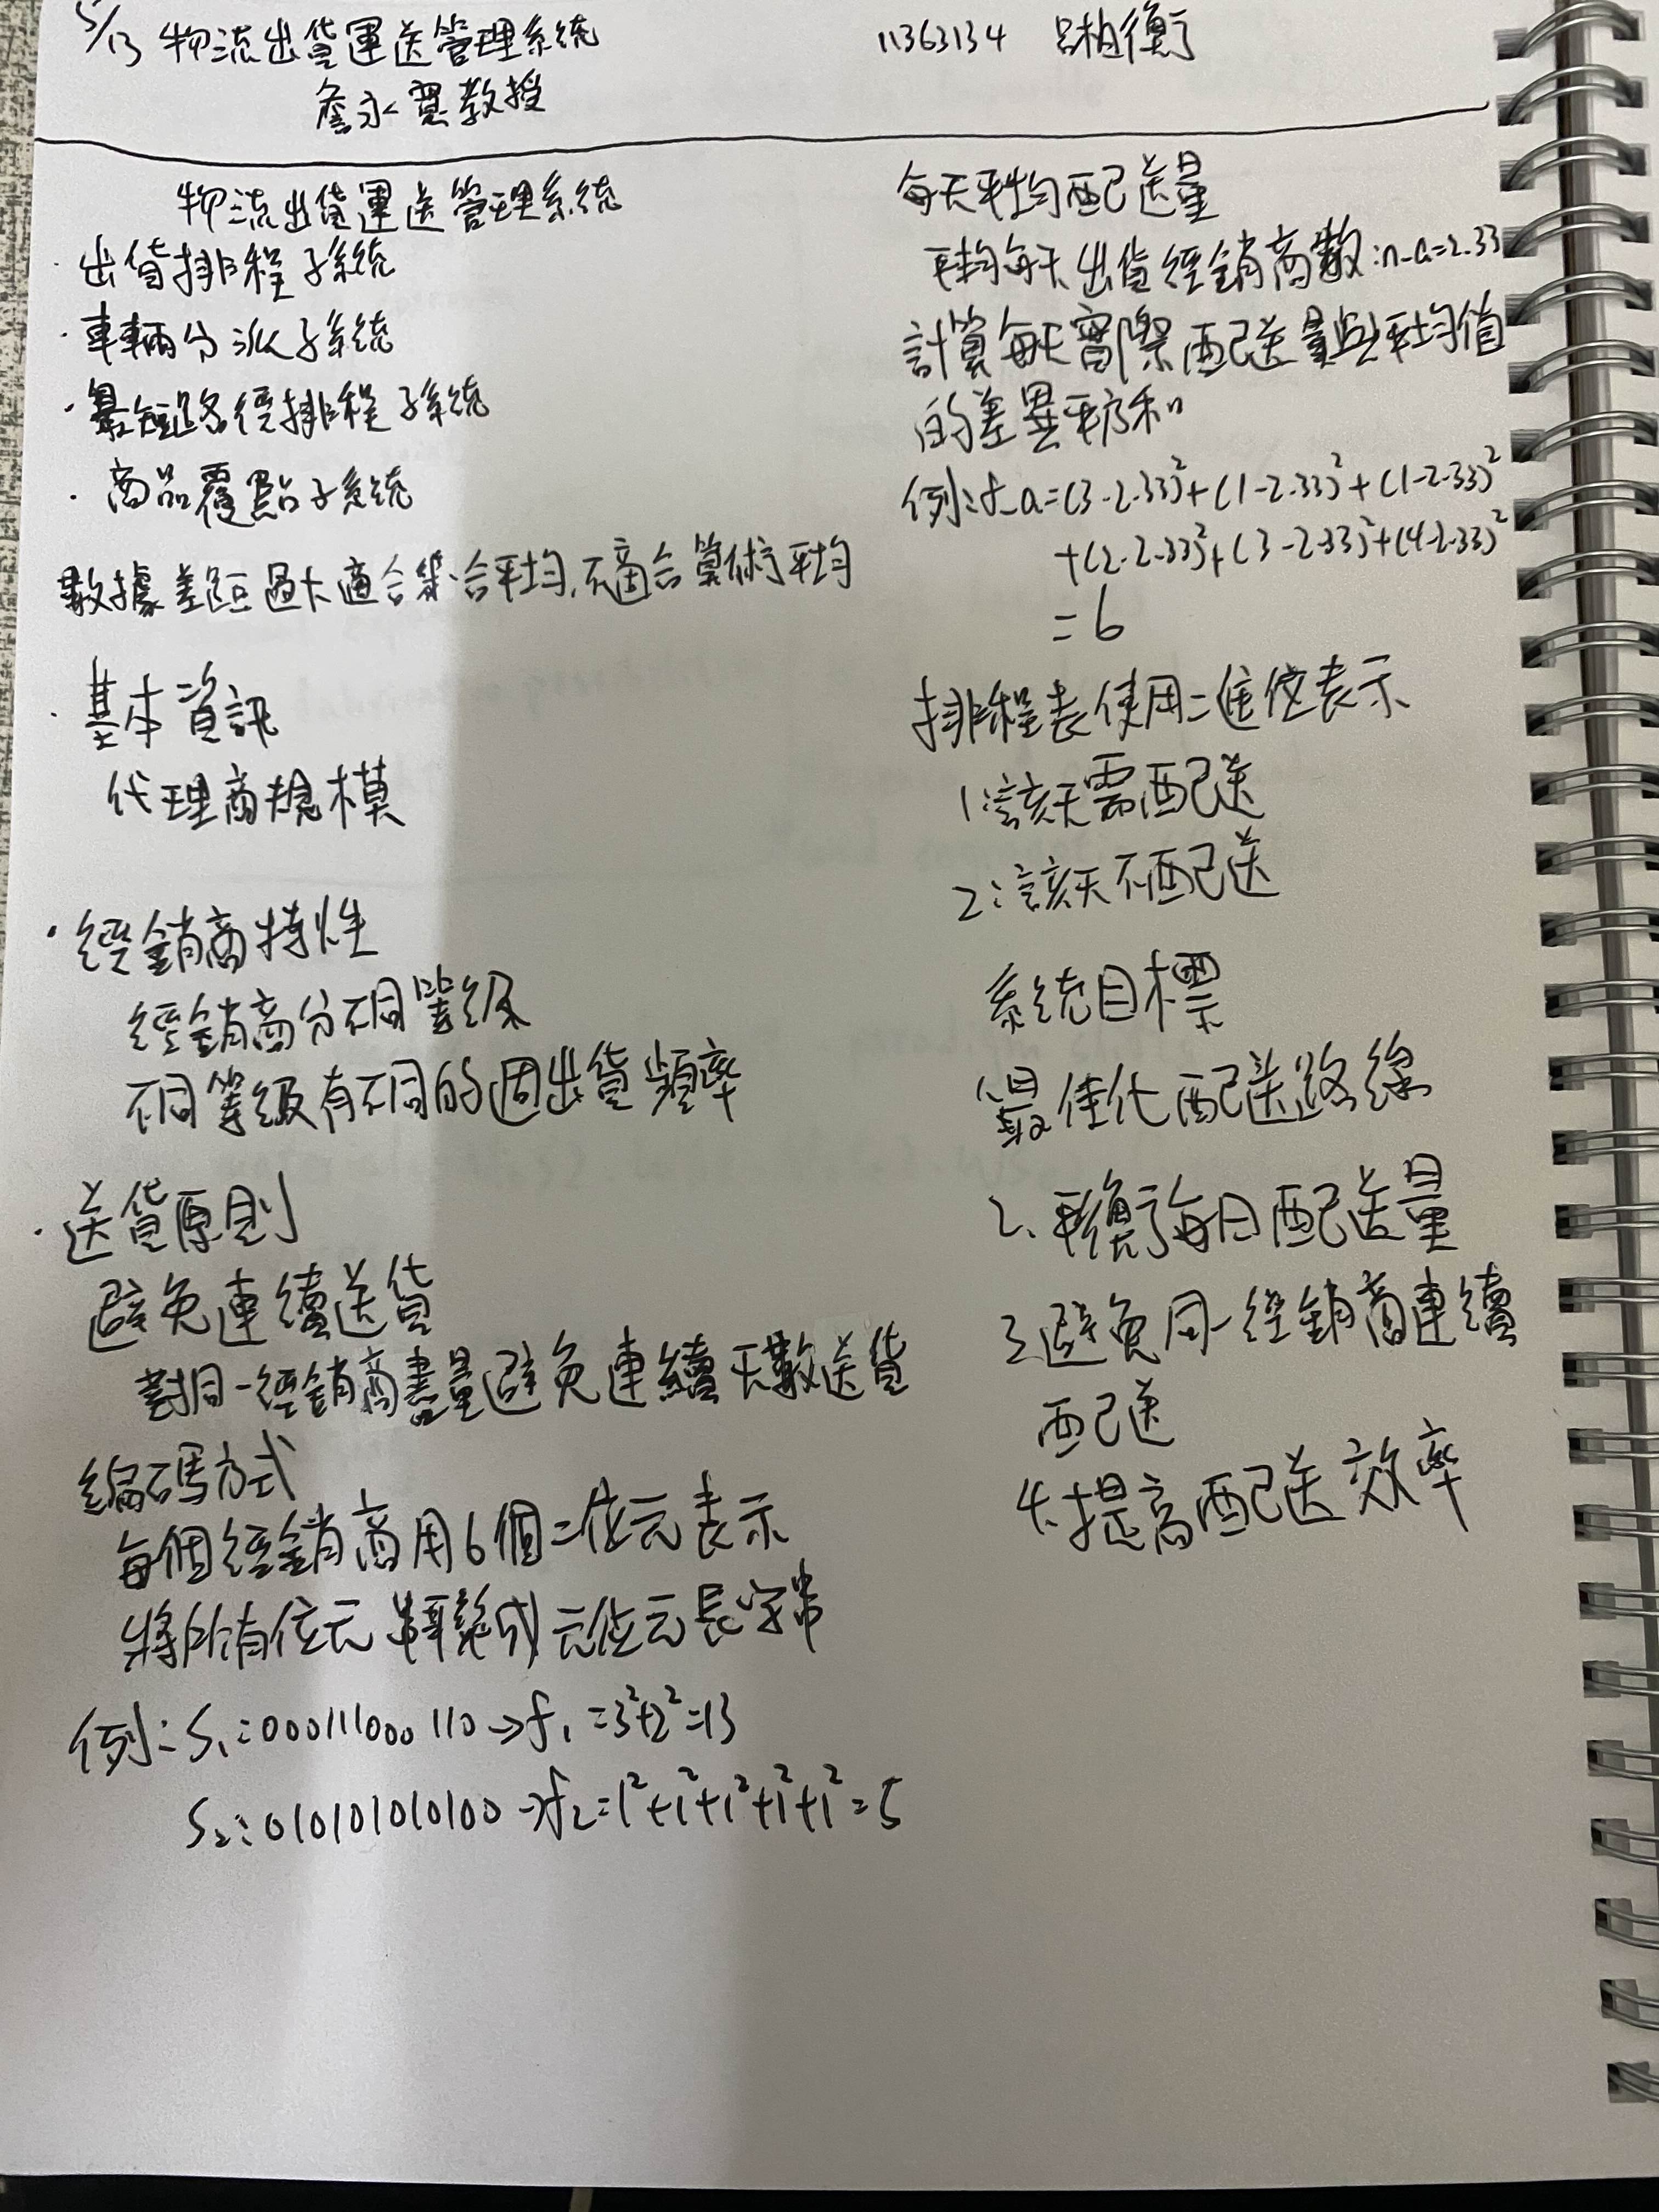 5/13 物流出貨運送管理系統
11363134 呂柏衡
詹永寬教授
物流出貨運送管理系統
·出貨排程子系統
·車輛分派子系統
·最短路徑排程子系統
·商品覆點子系統
數據差距過大適合幾合平均,不適合算術平均
·基本資訊
代理商規模
·經銷商特性
經銷商分不同等級
不同等級有不同的週出貨頻率
·送貨原則
避免連續送貨
對同一經銷商盡量避免連續天數送貨
編碼方式
每個經銷商用6個二位元表示
將所有位元串聯成元位元長字串
例:S₁:000111000110→f₁=3²+2²=13
S₂:010101010100→f₂=1²+1²+1²+1²+1²=5
每天平均配送量
平均每天出貨經銷商數:n_a=2.33
計算每天實際配送量與平均值
的差異平方和
例:f_a=(3-2.33)²+(1-2.33)²+(1-2.33)²
+(2-2.33)²+(3-2.33)²+(4-2.33)²
=6
排程表使用二進位表示
1:該天需配送
2:該天不配送
系統目標
最佳化配送路線
2.平衡每日配送量
3.避免同一經銷商連續
配送
4.提高配送效率